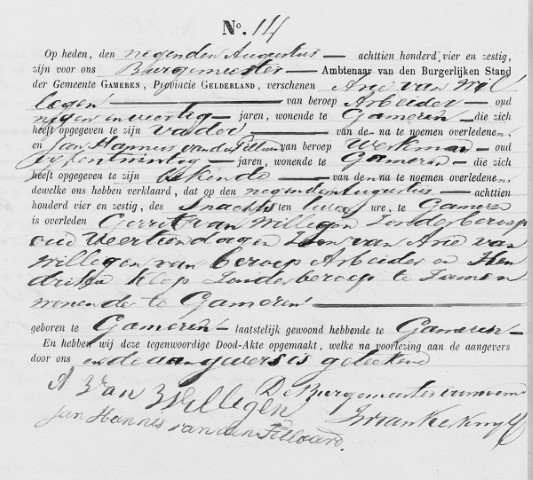 No. 14
Op heden, den negenden Augustus — achttien honderd vier en zestig,
zijn voor ons Burgemeester — Ambtenaar van den Burgerlijken Stand
der Gemeente GAMEREN, Provincie GELDERLAND, verschenen Arie van Wil
legen — van beroep Arbeider — oud
negen en veertig — jaren, wonende te Gameren — die zich
heeft opgegeven te zijn vader — van de na te noemen overledenen,
en Jan Hannus van den van beroep Werkman — oud
en — jaren, wonende te Gameren — die zich
heeft opgegeven te zijn bekende — van de na te noemen overledenen,
dewelke ons hebben verklaard, dat op den negenden Augustus — achttien
honderd vier en zestig, des 's nachts ten twee ure, te Gameren
is overleden Gerrit van Willegen zonder beroep
oud veertien dagen zoon van Arie van
Willegen van beroep Arbeider en Hen
drika Klop zonder beroep te zamen
wonende te Gameren
geboren te Gameren — laatstelijk gewoond hebbende te Gameren —
En hebben wij deze tegenwoordige Dood-Akte opgemaakt, welke na voorlezing aan de aangevers
door ons en de aangevers is geteekend
A Van Willegen De Burgemeester voornoemd
Jan Hannes van den